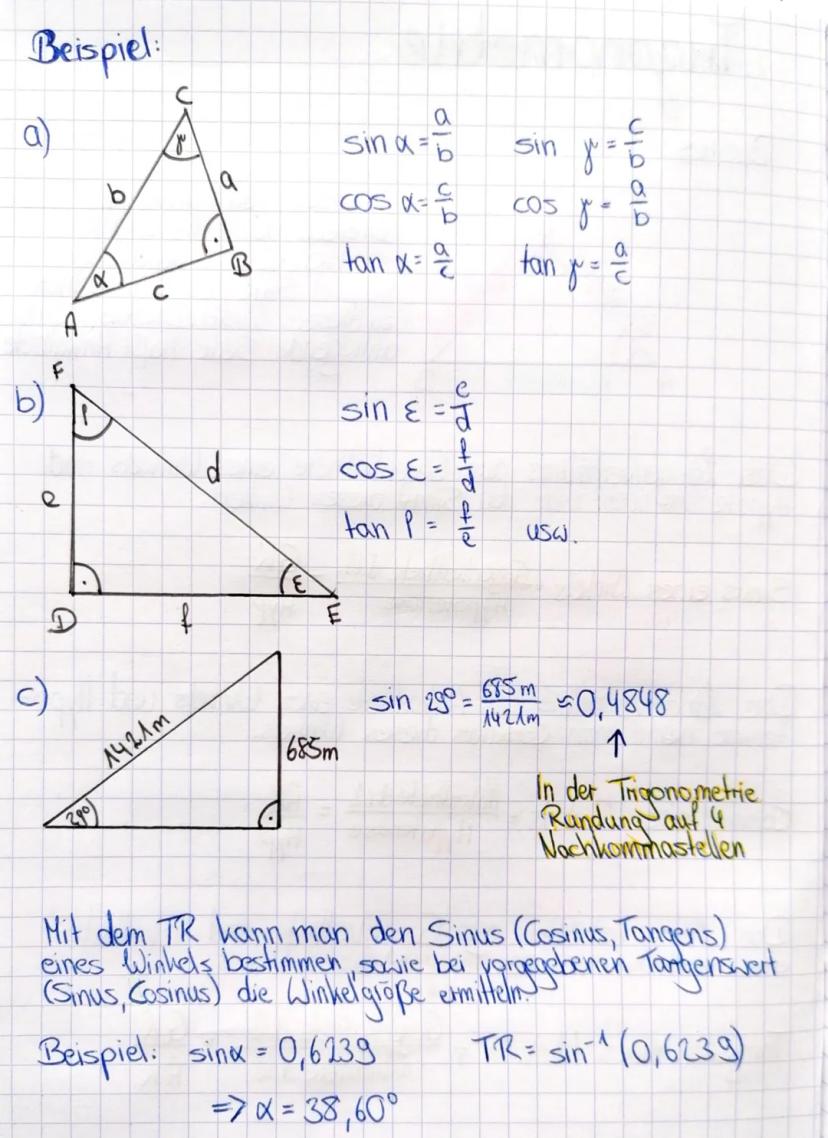 Beispiel:
a)
C
γ
b
a
α
c
B
A
sin α = a/b
sin γ = c/b
cos α = c/b
cos γ = a/b
tan α = a/c
tan γ = a/c
b)
F
ρ
d
e
ε
D
f
E
sin ε = e/d
cos ε = f/d
tan ρ = f/e usw.
c)
1421m
685m
29°
sin 29° = 685m/1421m ≈ 0,4848
↑
In der Trigonometrie
Rundung auf 4
Nachkommastellen
Mit dem TR kann man den Sinus (Cosinus, Tangens)
eines Winkels bestimmen, sowie bei vorgegebenen Tangenswert
(Sinus, Cosinus) die Winkelgröße ermitteln.
Beispiel: sinα = 0,6239 TR = sin⁻¹ (0,6239)
=> α = 38,60°